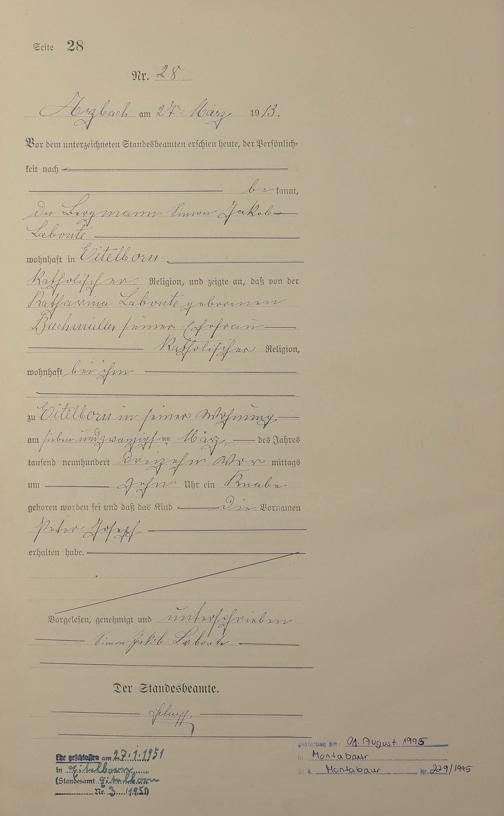 Seite 28
Nr. 28
Arzbach am 27 März 1913.
Vor dem unterzeichneten Standesbeamten erschien heute, der Persönlich-
keit nach
be kannt,
der Bergmann Simon Jakob
Labonte
wohnhaft in Eitelborn
katholischer Religion, und zeigte an, daß von der
Katharina Labonte geborenen
Bachmüller seiner Ehefrau
katholischer Religion,
wohnhaft bei ihm
zu Eitelborn in seiner Wohnung
am sieben und zwanzigsten März des Jahres
tausend neunhundert dreizehn Vor mittags
um zehn Uhr ein Knabe
geboren worden sei und daß das Kind die Vornamen
Peter Joseph
erhalten habe.
Vorgelesen, genehmigt und unterschrieben
Simon Jakob Labonte
Der Standesbeamte.
Ehe geschlossen am 27.1.1951
in Eitelborn
(Standesamt Eitelborn
Nr. 3
am: 01. August 1995
Montabaur
Montabaur Nr. 229/1995